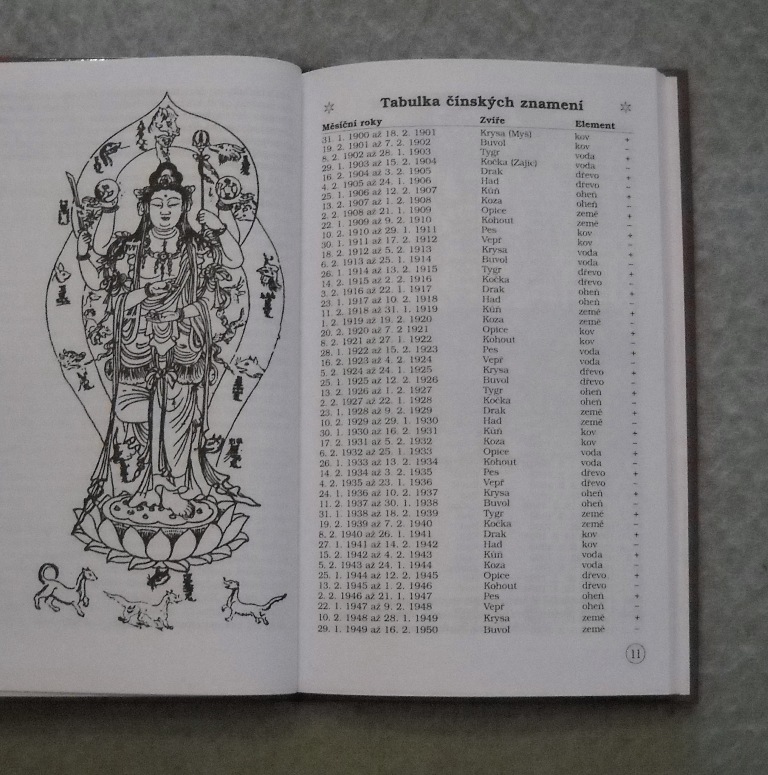 Tabulka čínských znamení
Měsíční roky Zvíře Element
31. 1. 1900 až 18. 2. 1901 Krysa (Myš) kov +
19. 2. 1901 až 7. 2. 1902 Buvol kov –
8. 2. 1902 až 28. 1. 1903 Tygr voda +
29. 1. 1903 až 15. 2. 1904 Kočka (Zajíc) voda –
16. 2. 1904 až 3. 2. 1905 Drak dřevo +
4. 2. 1905 až 24. 1. 1906 Had dřevo –
25. 1. 1906 až 12. 2. 1907 Kůň oheň +
13. 2. 1907 až 1. 2. 1908 Koza oheň –
2. 2. 1908 až 21. 1. 1909 Opice země +
22. 1. 1909 až 9. 2. 1910 Kohout země –
10. 2. 1910 až 29. 1. 1911 Pes kov +
30. 1. 1911 až 17. 2. 1912 Vepř kov –
18. 2. 1912 až 5. 2. 1913 Krysa voda +
6. 2. 1913 až 25. 1. 1914 Buvol voda –
26. 1. 1914 až 13. 2. 1915 Tygr dřevo +
14. 2. 1915 až 2. 2. 1916 Kočka dřevo –
3. 2. 1916 až 22. 1. 1917 Drak oheň +
23. 1. 1917 až 10. 2. 1918 Had oheň –
11. 2. 1918 až 31. 1. 1919 Kůň země +
1. 2. 1919 až 19. 2. 1920 Koza země –
20. 2. 1920 až 7. 2 1921 Opice kov +
8. 2. 1921 až 27. 1. 1922 Kohout kov –
28. 1. 1922 až 15. 2. 1923 Pes voda +
16. 2. 1923 až 4. 2. 1924 Vepř voda –
5. 2. 1924 až 24. 1. 1925 Krysa dřevo +
25. 1. 1925 až 12. 2. 1926 Buvol dřevo –
13. 2. 1926 až 1. 2. 1927 Tygr oheň +
2. 2. 1927 až 22. 1. 1928 Kočka oheň –
23. 1. 1928 až 9. 2. 1929 Drak země +
10. 2. 1929 až 29. 1. 1930 Had země –
30. 1. 1930 až 16. 2. 1931 Kůň kov +
17. 2. 1931 až 5. 2. 1932 Koza kov –
6. 2. 1932 až 25. 1. 1933 Opice voda +
26. 1. 1933 až 13. 2. 1934 Kohout voda –
14. 2. 1934 až 3. 2. 1935 Pes dřevo +
4. 2. 1935 až 23. 1. 1936 Vepř dřevo –
24. 1. 1936 až 10. 2. 1937 Krysa oheň +
11. 2. 1937 až 30. 1. 1938 Buvol oheň –
31. 1. 1938 až 18. 2. 1939 Tygr země +
19. 2. 1939 až 7. 2. 1940 Kočka země –
8. 2. 1940 až 26. 1. 1941 Drak kov +
27. 1. 1941 až 14. 2. 1942 Had kov –
15. 2. 1942 až 4. 2. 1943 Kůň voda +
5. 2. 1943 až 24. 1. 1944 Koza voda –
25. 1. 1944 až 12. 2. 1945 Opice dřevo +
13. 2. 1945 až 1. 2. 1946 Kohout dřevo –
2. 2. 1946 až 21. 1. 1947 Pes oheň +
22. 1. 1947 až 9. 2. 1948 Vepř oheň –
10. 2. 1948 až 28. 1. 1949 Krysa země +
29. 1. 1949 až 16. 2. 1950 Buvol země –
11